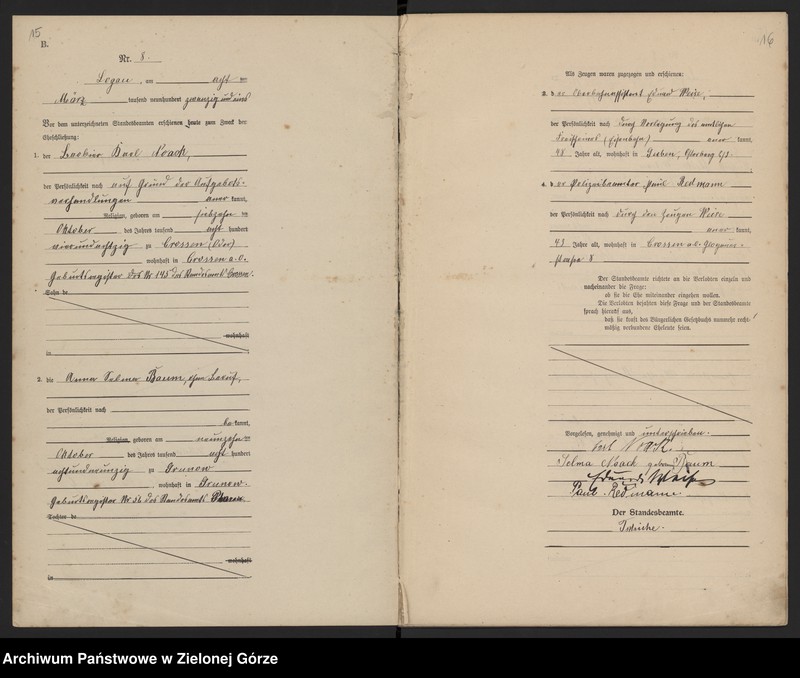 15
B.
Nr. 8.
Logau, am acht ten
März tausend neunhundert zwanzig und eins
Vor dem unterzeichneten Standesbeamten erschienen heute zum Zweck der
Eheschließung:
1. der Karl Noack,
der Persönlichkeit nach auf Grund der Aufgebots-
verhandlungen anerkannt,
Religion, geboren am siebzehn ten
Oktober des Jahres tausend acht hundert
vierundachtzig zu Crossen (Oder)
wohnhaft in Crossen a.O.
Geburtsregister Nr 145 des Standesamts Crossen.
Sohn de
wohnhaft
in
2. die Anna Selma Baum, ohne Beruf,
der Persönlichkeit nach
bekannt,
Religion, geboren am neunzehn ten
Oktober des Jahres tausend acht hundert
achtundneunzig zu Grunow
wohnhaft in Grunow.
Geburtsregister Nr 56 des Standesamts
Tochter de
wohnhaft
in
16
Als Zeugen waren zugezogen und erschienen:
3. der Eduard Weise,
der Persönlichkeit nach durch Vorlegung des amtlichen
(Eisenbahn) anerkannt,
48 Jahre alt, wohnhaft in Guben,
4. der Polizeibeamter Paul Redmann
der Persönlichkeit nach durch den Zeugen Weise
anerkannt,
43 Jahre alt, wohnhaft in Crossen a.O. Glogauer-
straße 8
Der Standesbeamte richtete an die Verlobten einzeln und
nacheinander die Frage:
ob sie die Ehe miteinander eingehen wollen.
Die Verlobten bejahten diese Frage und der Standesbeamte
sprach hierauf aus,
daß sie kraft des Bürgerlichen Gesetzbuchs nunmehr recht-
mäßig verbundene Eheleute seien.
Vorgelesen, genehmigt und unterschrieben.
Karl Noack.
Selma Noack geborene Baum
Eduard Weise
Paul Redmann
Der Standesbeamte.
Archiwum Państwowe w Zielonej Górze